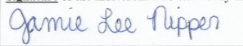 Jamie Lee Nipper